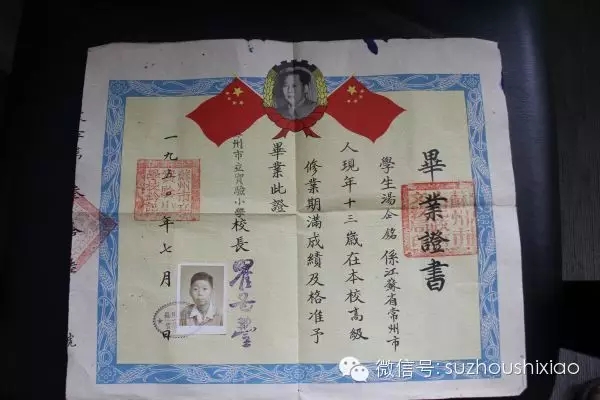 畢業證書
學生湯銘 係江蘇省常州市
人現年十三歲在本校高級
修業期滿成績及格准予
畢業此證
州市立實驗小學校長
一九五〇年七月 日
號
微信号: suzhoushixiao